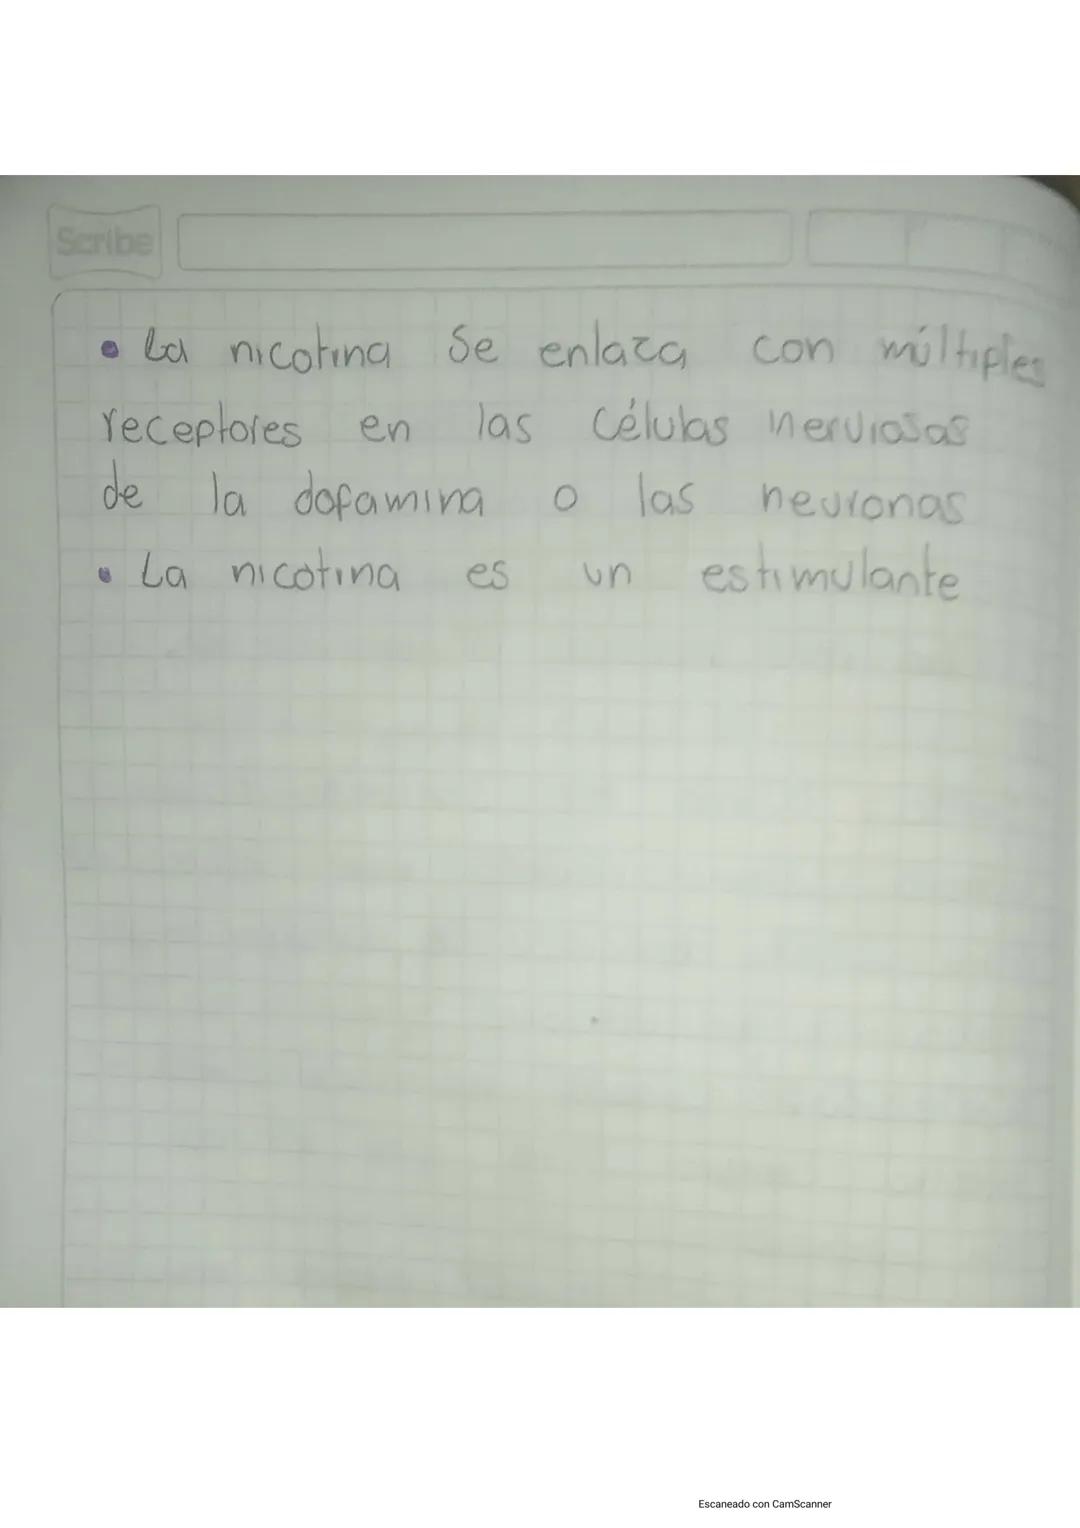 Scribe
• La nicotina se enlaza con múltiples
receptores en las células nerviosas
de la dopamina o las neuronas
• La nicotina es un estimulante
Escaneado con CamScanner